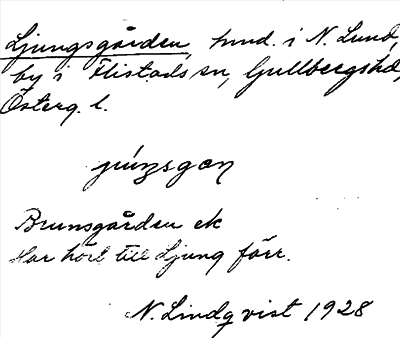 Ljungsgården, hmd. i N. Lund,
by i Flistads sn, Gullbergshd,
Österg. l.
júŋsgaṇ
Brunsgården ek
Har hört till Ljung förr.
N. Lindqvist 1928